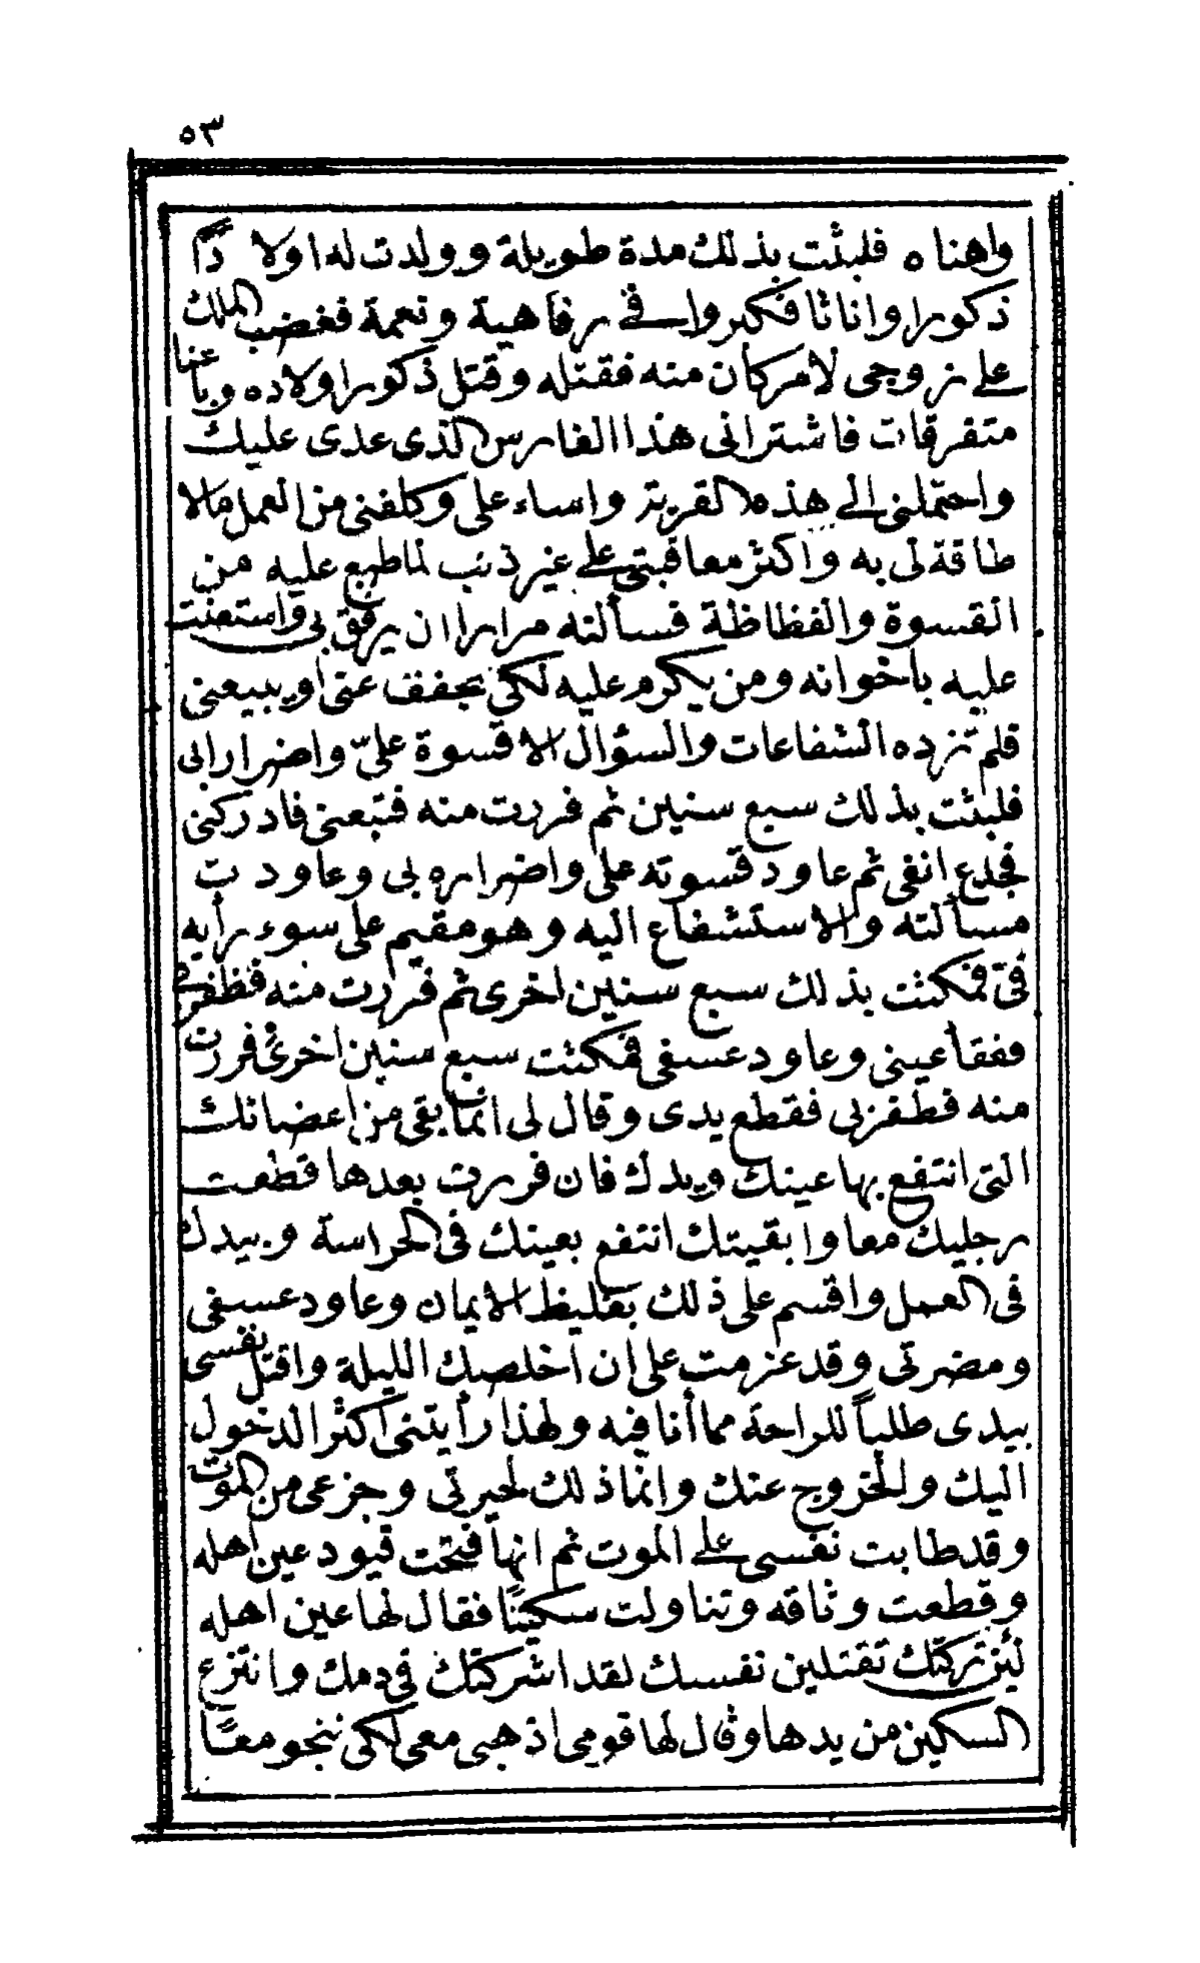 ٥٣
واهناه فلبثت بذلك مدة طويلة وولدت له اولادًا
ذكورا واناثا فكبروا في رفاهية ونعمة فغضب الملك
على زوجى لامر كان منه فقتله وقتل ذكورا ولاده وباعنا
متفرقات فاشترانى هذا الفارس الذى عدى عليك
واحتملنى الى هذه القرية واساء على وكلفنى من العمل مالا
طاقة لى به واكثر معاقبتى على غير ذنب لما طبع عليه من
القسوة والفظاظة فسألته مرارا ان يرفق بى واستعنت
عليه باخوانه ومن يكرم عليه لكى يخفف عنى او يبيعنى
فلم تزده الشفاعات والسؤال الا قسوة علىّ واضرارا بى
فلبثت بذلك سبع سنين ثم فررت منه فتبعنى فادركنى
فجدع انفى ثم عاود قسوته على واضراره بى وعاودت
مسألته والاستشفاع اليه وهو مقيم على سوء رأيه
فىّ فمكثت بذلك سبع سنين اخرى ثم فررت منه فظفر بى
ففقأ عينى وعاود عسفى فمكثت سبع سنين اخرى ففررت
منه فظفر بى فقطع يدى وقال لى انما بقى من اعضائك
التى انتفع بها عينك ويدك فان فررت بعدها قطعت
رجليك معا وابقيتك انتفع بعينك فى الحراسة وبيدك
فى العمل واقسم على ذلك بغليظ الايمان وعاود عسفى
ومضرتى وقد عزمت على ان اخلصك الليلة واقتل نفسى
بيدى طلباً للراحة مما أنا فيه ولهذا رأيتنى اكثر الدخول
اليك والخروج عنك وانما ذلك لحيرتى وجزعى من الموت
وقد طابت نفسى على الموت ثم انها فتحت قيود عين اهله
وقطعت وثاقه وتناولت سكينًا فقال لها عين اهله
لئن تركتك تقتلين نفسك لقد اشركتك فى دمك وانتزع
السكين من يدها وقال لها قومى اذهبى معى لكى ننجو معًا